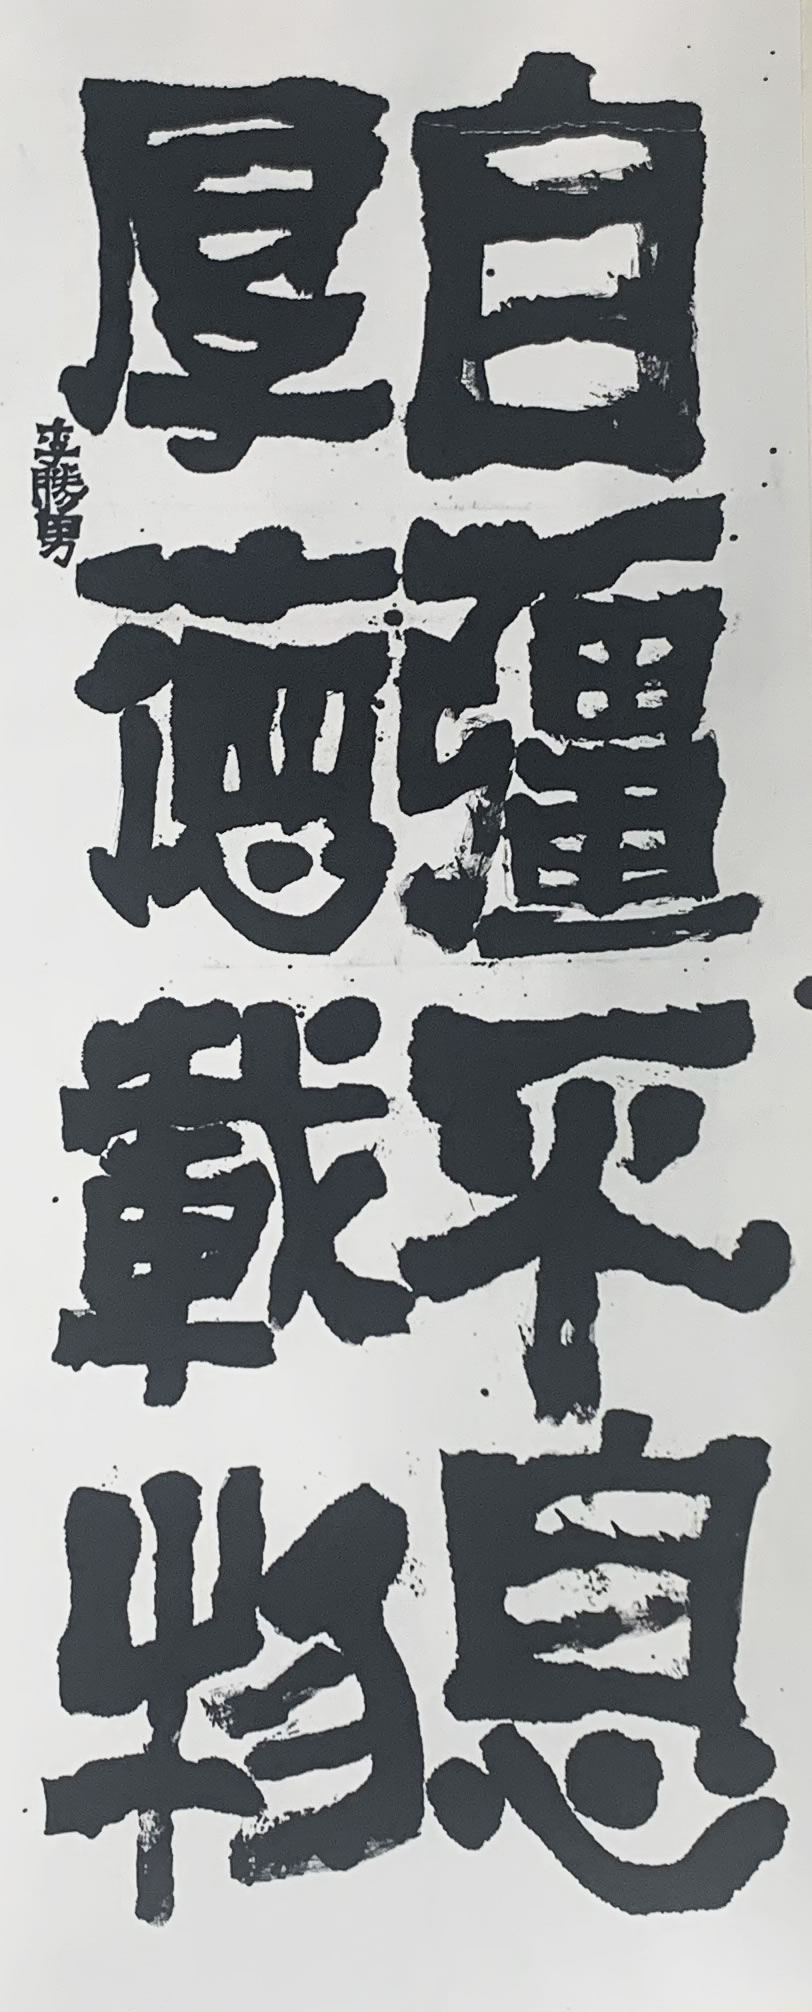 自彊不息
厚德載物
李勝男